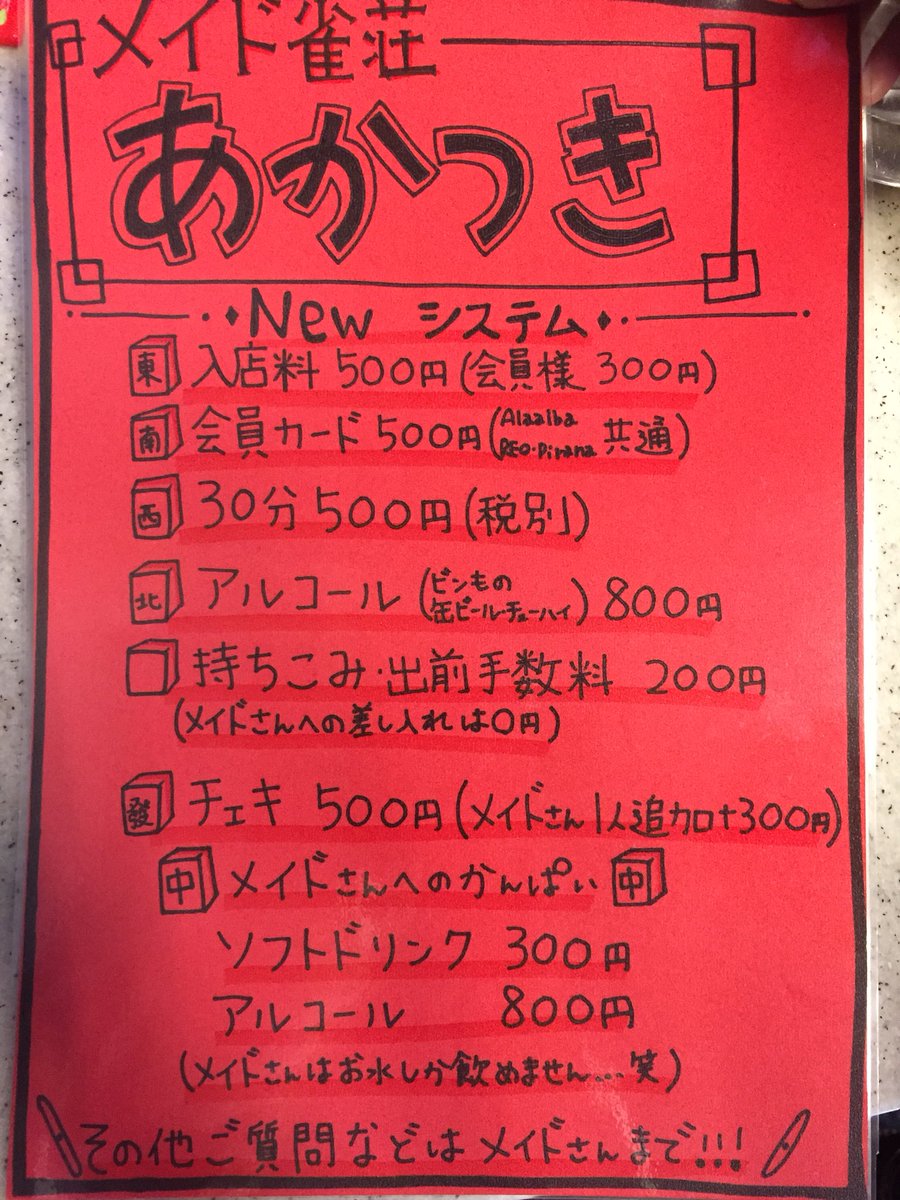 メイド雀荘
あかつき
New システム
東 入店料 500円(会員様 300円)
南 会員カード 500円(Alaalba REO・Pirana 共通)
西 30分 500円(税別)
北 アルコール(ビンもの 缶ビール・チューハイ) 800円
持ちこみ・出前手数料 200円
(メイドさんへの差し入れは0円)
發 チェキ 500円(メイドさん1人追加+300円)
中 メイドさんへのかんぱい 中
ソフトドリンク 300円
アルコール 800円
(メイドさんはお水しか飲めません...笑)
その他ご質問などはメイドさんまで!!!